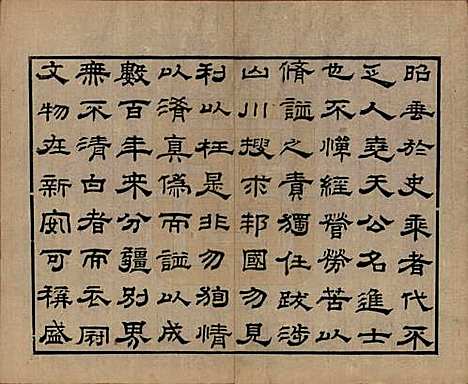 昭垂於史乘者代不
乏人堯天公名進士
也不憚經營勞苦以
脩諩之責獨任跋涉
山川搜求邦國勿見
利以枉是非勿狥情
以淆真偽而諩以成
數百年來分疆別界
無不清白者而衣冠
文物在新安可稱盛